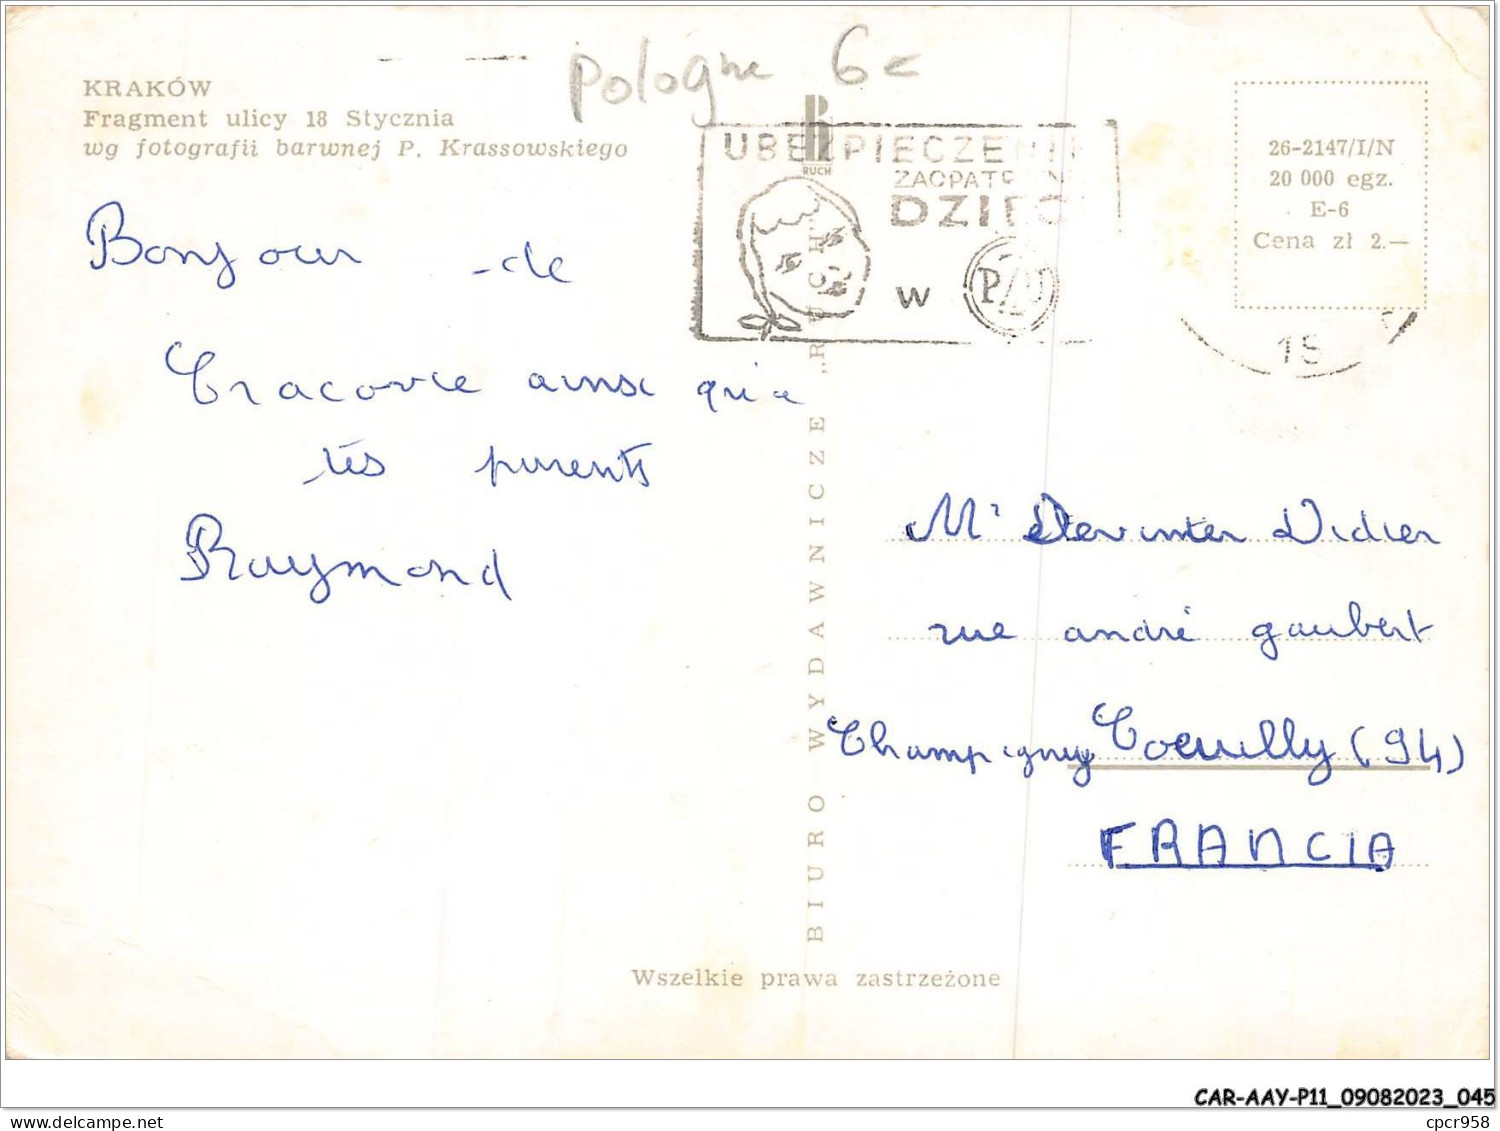 Pologne 6€
KRAKÓW
Fragment ulicy 18 Stycznia
wg fotografii barwnej P. Krassowskiego
RUCH
UBEZPIECZENIE
ZAOPATRZ
DZIEC
w PZU
26-2147/I/N
20 000 egz.
E-6
Cena zł 2.—
15
Bonjour de
Cracovie ainsi qu'a
tes parents
Raymond
BIURO WYDAWNICZE „RUCH"
Mr Devinter Didier
rue andré gaubert
Champigny Coeuilly (94)
FRANCIA
Wszelkie prawa zastrzeżone
CAR-AAY-P11_09082023_045
delcampe.net
cpcr958